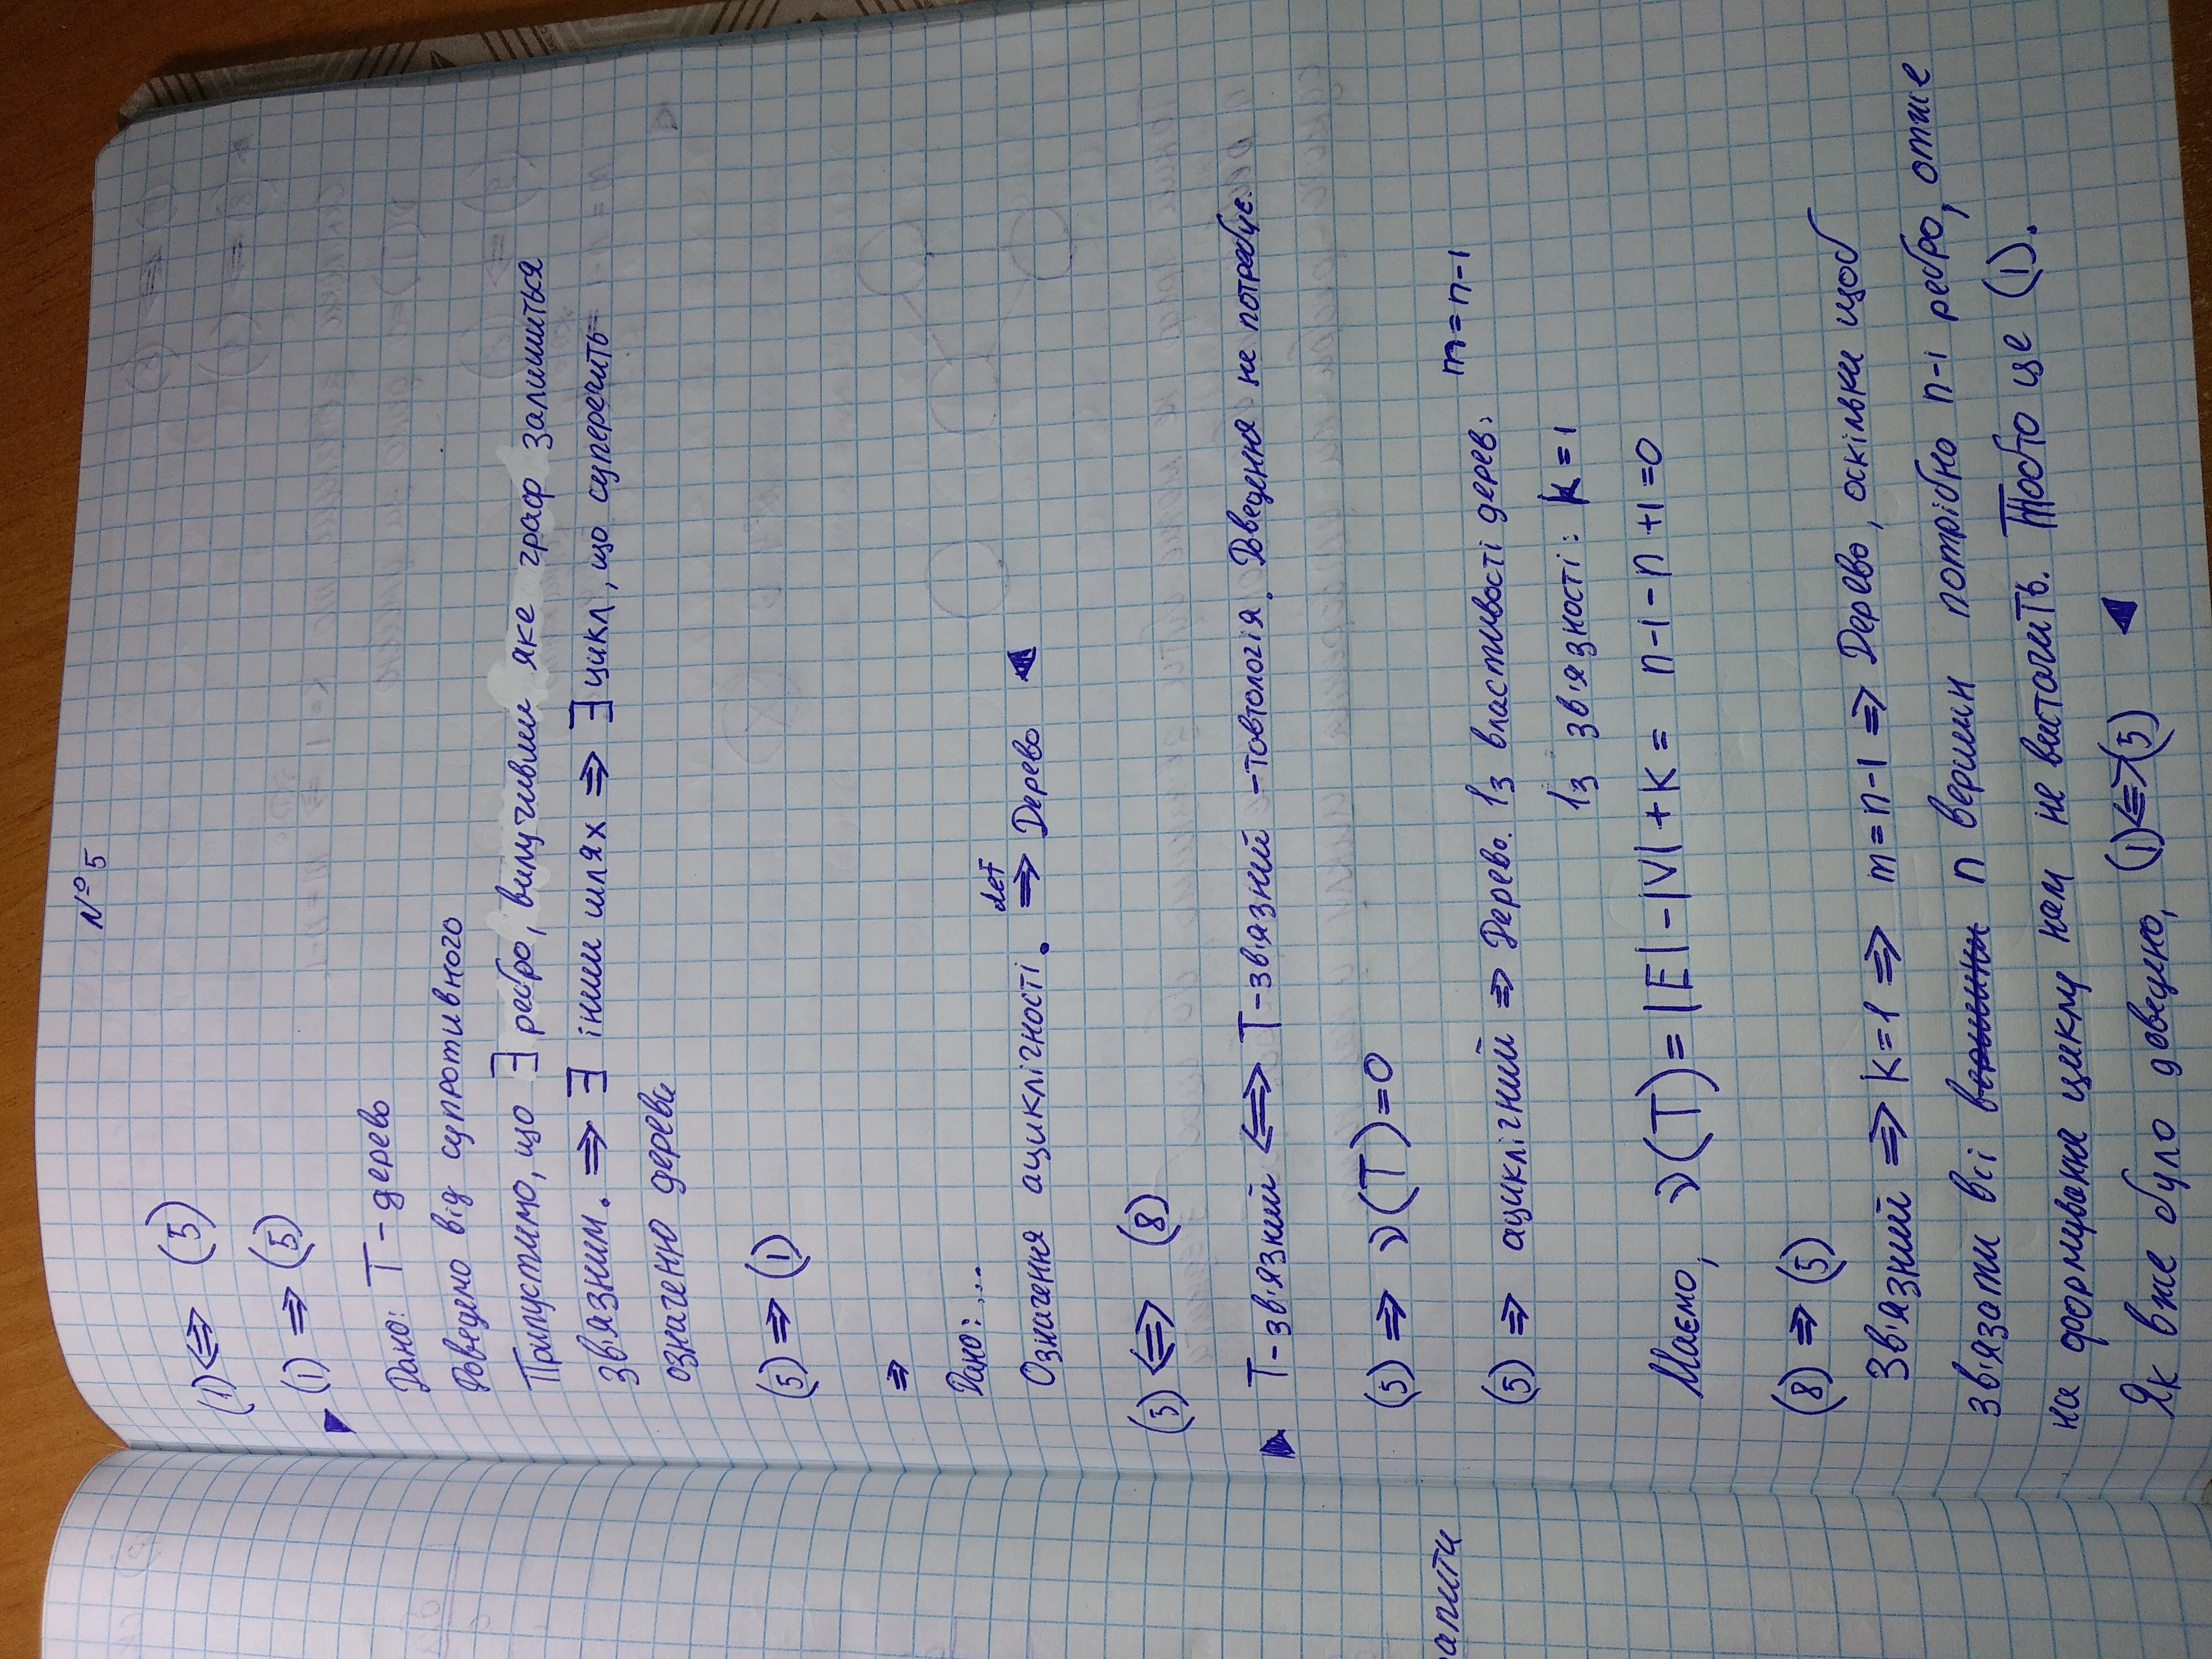 № 5
(1) ⇔ (5)
(1) ⇒ (5)
Дано: T - дерево
Доведемо від супротивного
Припустимо, що ∃ ребро, вилучивши яке граф залишиться
зв'язним. ⇒ ∃ інший шлях ⇒ ∃ цикл, що суперечить
означенню дерева
(5) ⇒ (1)
⇒
Дано: ...
Означення ациклічності. def ⇒ Дерево
(5) ⇔ (8)
T - зв'язний ⇔ T - зв'язний - товтологія. Доведення не потребує.
(5) ⇒ ν(T)=0
апити
(5) ⇒ ациклічний ⇒ Дерево. Із властивості дерев: m=n-1
Із зв'язності: k=1
Маємо, ν(T) = |E| - |V| + k = n-1-n+1=0
(8) ⇒ (5)
Зв'язний ⇒ k=1 ⇒ m=n-1 ⇒ Дерево, оскільки щоб
зв'язати всі вершини n вершин потрібно n-1 ребро, отже
на формування циклу нам не вистачить. Тобто це (1).
Як вже було доведено, (1) ⇔ (5)